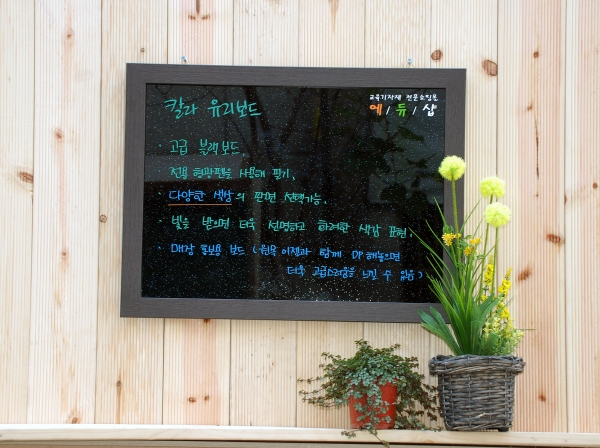 칼라 유리보드
교육기자재 전문쇼핑몰
에/듀/샵
· 고급 블랙보드.
· 전용 형광펜을 사용해 필기.
· 다양한 색상의 판면 선택가능.
· 빛을 받으면 더욱 선명하고 화려한 색감 표현.
· 매장 홍보용 보드 (원목 이젤과 함께 DP해놓으면
더욱 고급스러움을 느낄 수 있음)